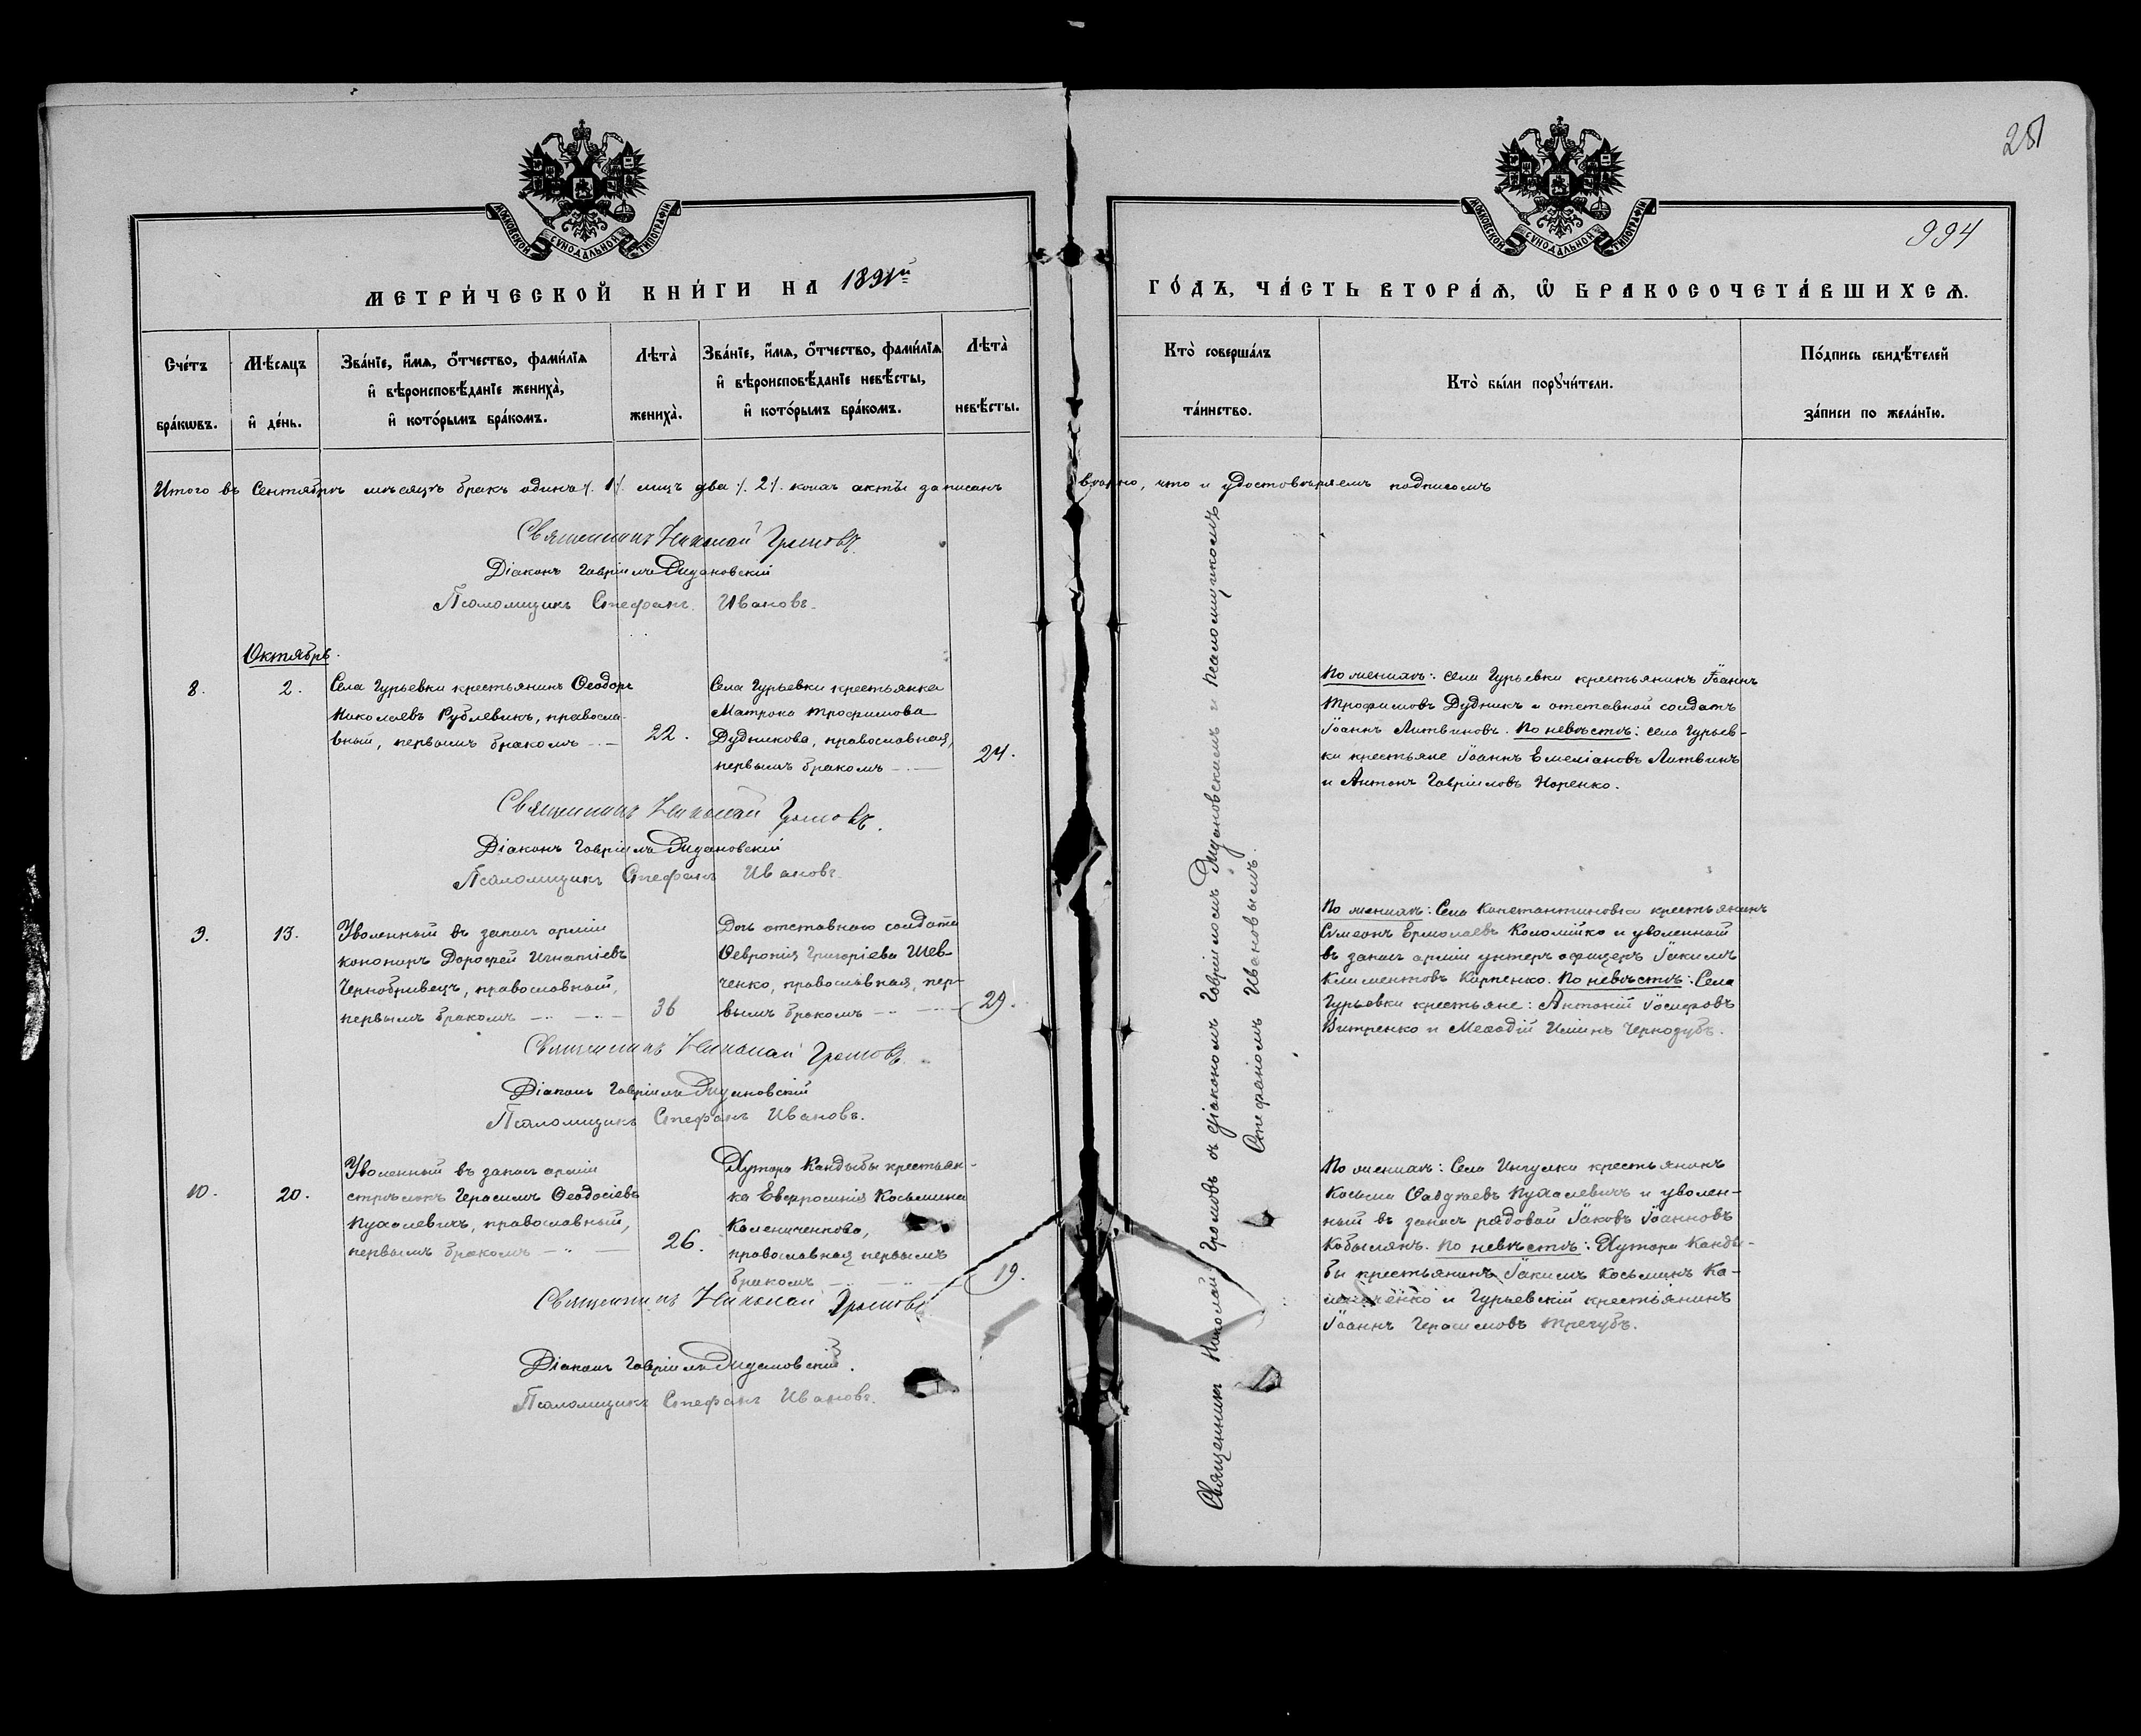 251
994
МОСКОВСКОЙ СѴНОДАЛЬНОЙ ТИПОГРАФІИ
МЕТРИ́ЧЕСКОЙ КНИ́ГИ НА 1891й
Сче́тъ бра́кѡвъ.
Мѣ́сѧцъ и҆ де́нь.
Зва́нїе, и҆́мѧ, ѻ҆́тчество, фами́лїѧ
и҆ вѣроисповѣ́данїе жениха̀,
и҆ кото́рымъ бра́комъ.
Лѣта̀
жениха̀.
Зва́нїе, и҆́мѧ, ѻ҆́тчество, фами́лїѧ
и҆ вѣроисповѣ́данїе невѣ́сты,
и҆ кото́рымъ бра́комъ.
Лѣта̀
невѣ́сты.
МОСКОВСКОЙ СѴНОДАЛЬНОЙ ТИПОГРАФІИ
ГО́ДЪ, ЧА́СТЬ ВТОРА́Ѧ, Ѡ҆ БРАКОСОЧЕТА́ВШИХСѦ.
Кто̀ соверша́лъ
та́инство.
Кто̀ бы́ли порꙋчи́тели.
По́дпись свидѣ́телей
за́писи по жела́нїю.
Итого въ Сентябрѣ мѣсяцѣ бракъ одинъ ⁒ 1 ⁒ лицъ два ⁒ 2 ⁒ коихъ акты записаны вѣрно, что и удостовѣряемъ подписомъ
Священникъ Николай Громовъ.
Діаконъ Гавріилъ Дидановскій
Псаломщикъ Стефанъ Ивановъ.
Октябрь.
8.
2.
Села Гурьевки крестьянинъ Ѳеодоръ
Николаевъ Рублевикъ, правосла-
вный, первымъ бракомъ
22.
Села Гурьевки крестьянка
Матрона Трофимова
Дудникова, православная,
первымъ бракомъ
24.
По женихѣ: села Гурьевки крестьянинъ Іоаннъ
Трофимовъ Дудникъ и отставной солдатъ
Іоаннъ Литвиновъ. По невѣстѣ: села Гурьев-
ки крестьяне Іоаннъ Емеліановъ Литвинъ
и Антонъ Гавріиловъ Норенко.
Священникъ Николай Громовъ.
Діаконъ Гавріилъ Дидановскій
Псаломщикъ Стефанъ Ивановъ.
9.
13.
Уволенный въ запасъ арміи
канониръ Дорофей Игнатіевъ
Чернобривецъ, православный,
первымъ бракомъ
36
Дочь отставного солдата
Ѳевронія Григоріева Шев-
ченко, православная, пер-
вымъ бракомъ
29.
По женихѣ: Села Константиновки крестьянинъ
Сѵмеонъ Ермолаевъ Коломійко и уволенный
въ запасъ арміи унтеръ офицеръ Іакимъ
Климентовъ Карпенко. По невѣстѣ: Села
Гурьевки крестьяне: Антоній Іосифовъ
Витренко и Меѳодій Илiинъ Чернодубъ.
Священникъ Николай Громовъ.
Діаконъ Гавріилъ Дидановскій
Псаломщикъ Стефанъ Ивановъ.
10.
20.
Уволенный въ запасъ арміи
стрѣлокъ Герасимъ Ѳеодосіевъ
Пухалевичъ, православный,
первымъ бракомъ
26.
Хутора Кандыбы крестьян-
ка Евфросинія Косьмина
Калениченкова,
православная первымъ
бракомъ
19.
По женихѣ: Села Ингулки крестьянинъ
Косьма Ѳаддеевъ Пухалевичъ и уволен-
ный въ запасъ рядовой Іаковъ Іоанновъ
Кобылянъ. По невѣстѣ: ХутораКанды-
бы крестьянинъ Іакимъ Косьминъ Ка-
лениченко и Гурьевскій крестьянинъ
Іоаннъ Герасимовъ Трегубъ.
Священникъ Николай Громовъ
Діаконъ Гавріилъ Дидановскій.
Псаломщикъ Стефанъ Ивановъ.
Священникъ Николай Громовъ съ діакономъ Гавріиломъ Дидановскимъ и псаломщикомъ
Стефаномъ Ивановымъ.